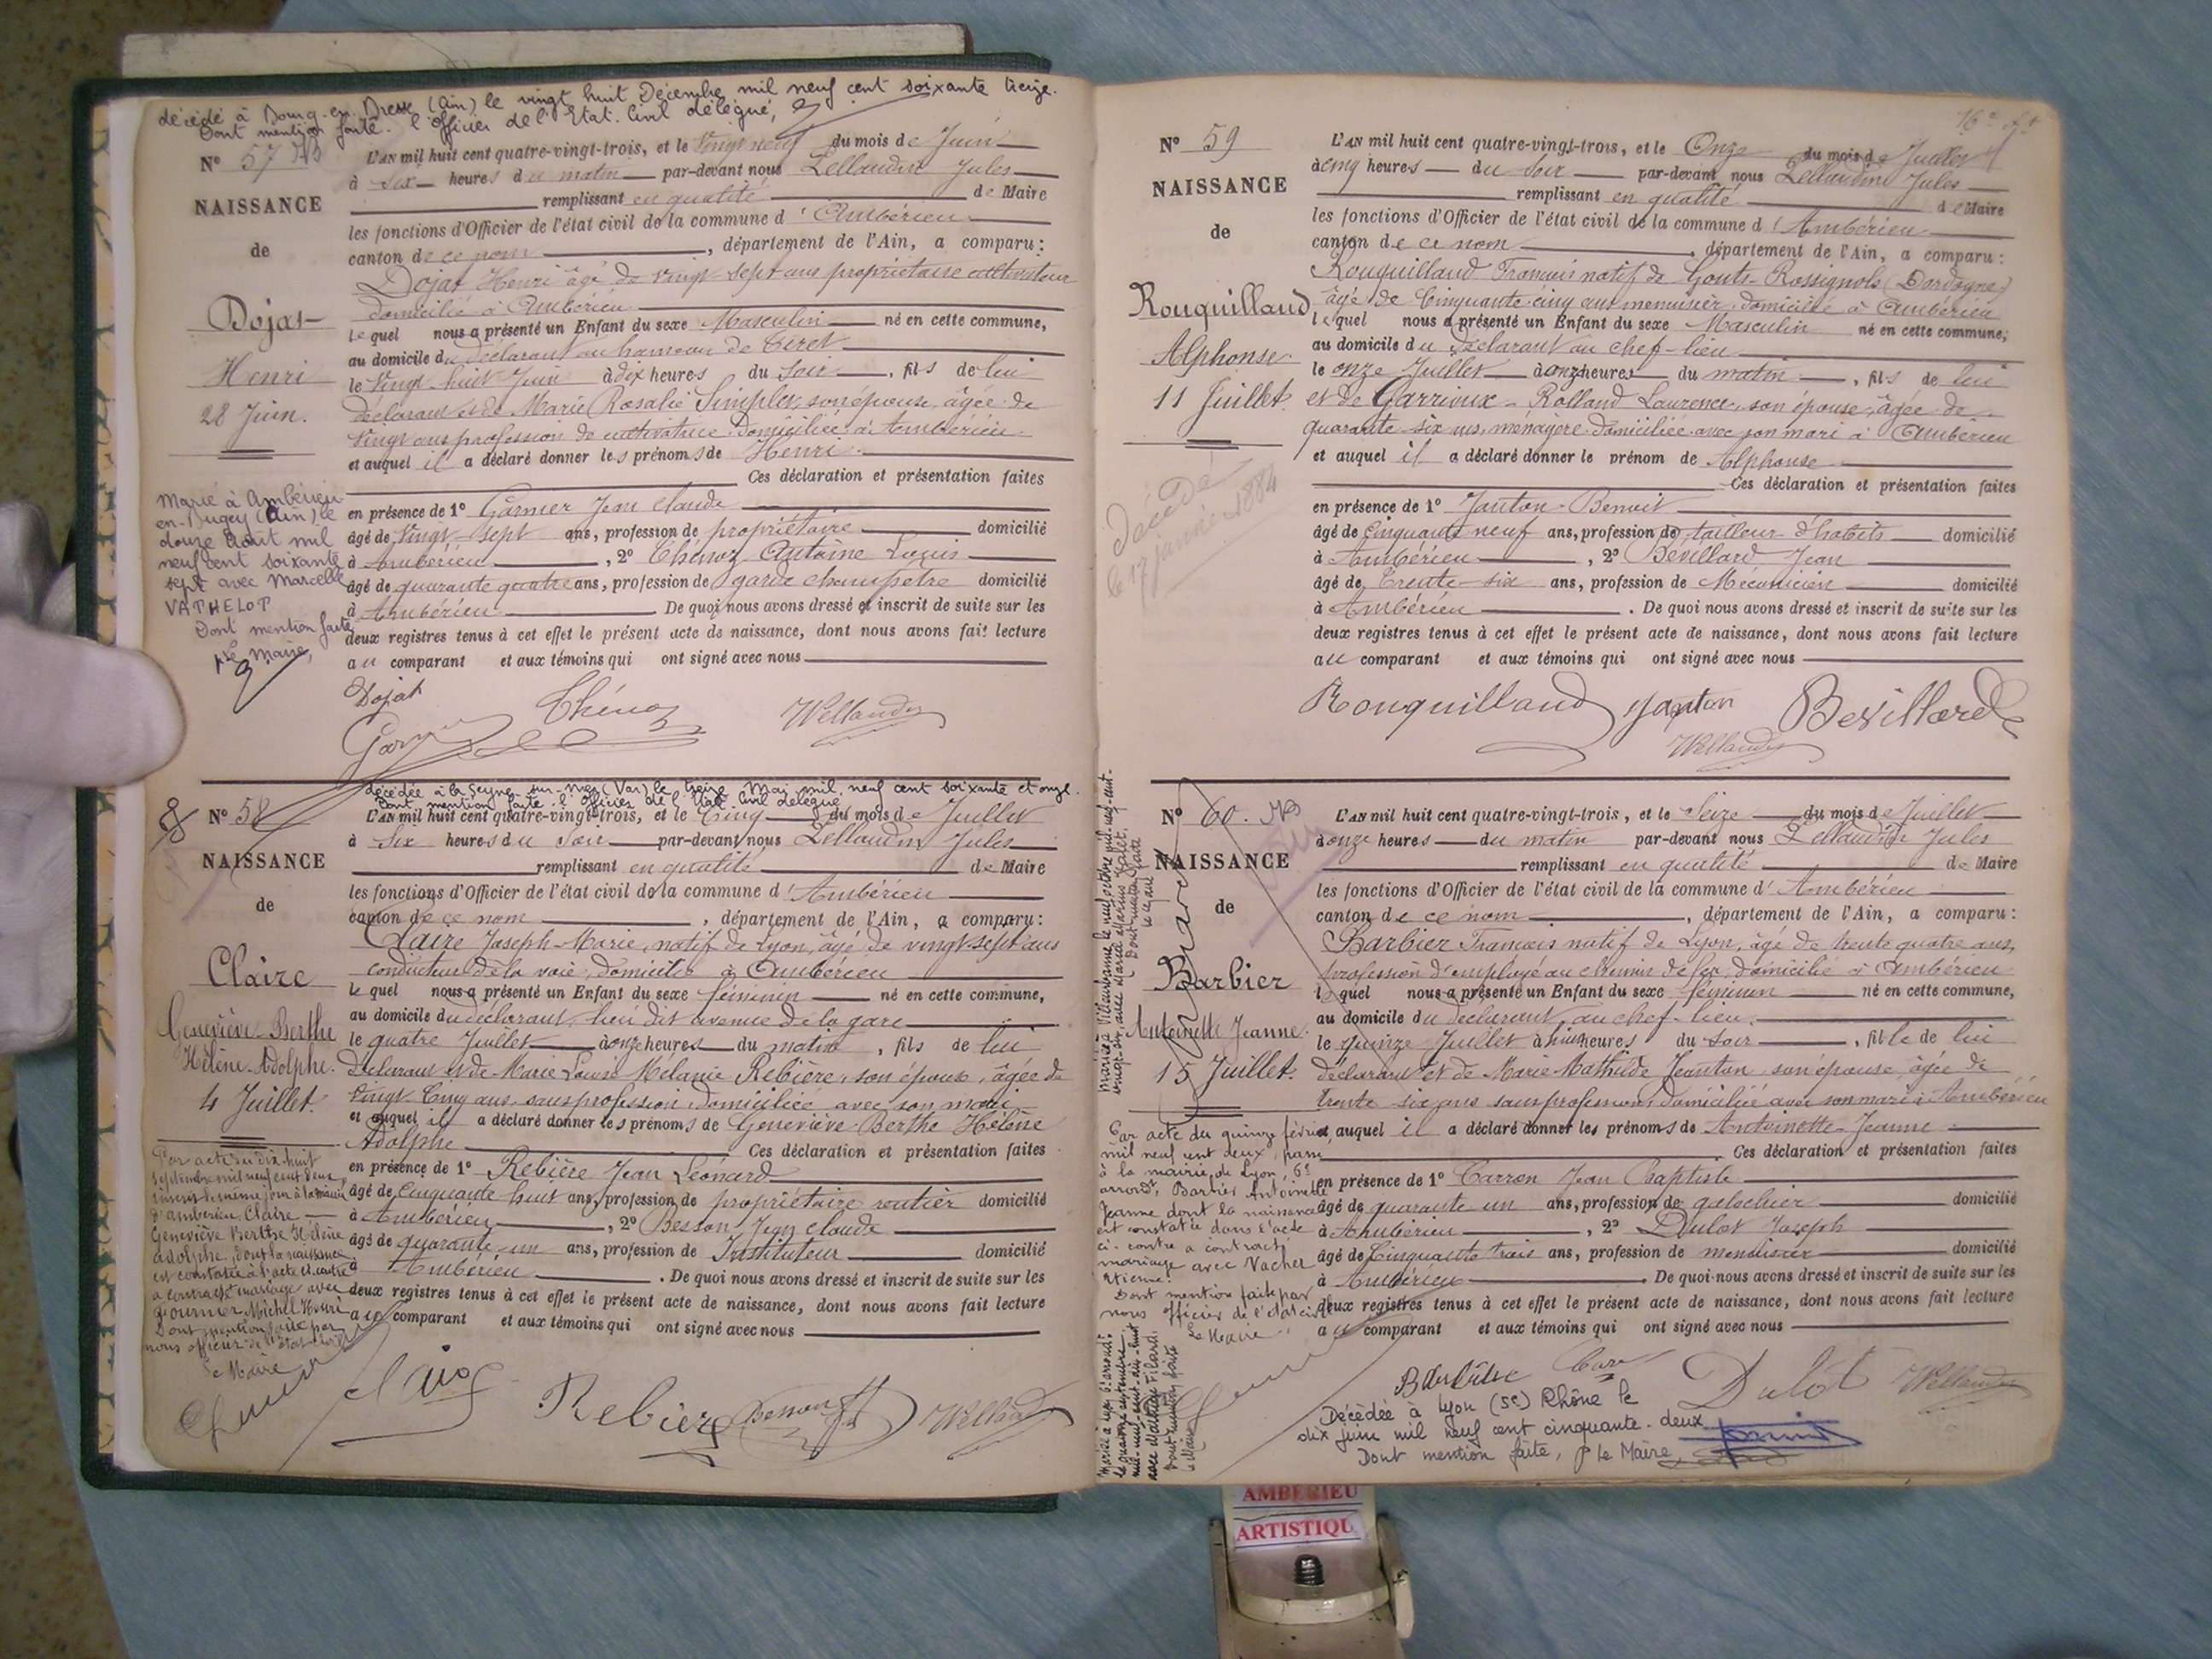 décédé à Bourg-en-Bresse (Ain) le vingt huit Décembre mil neuf cent soixante treize.
Dont mention faite. l'Officier de l'Etat-Civil délégué,
N° 57
L'AN mil huit cent quatre-vingt-trois, et le Vingt neuf du mois de Juin
à six heures du matin par-devant nous Jules
NAISSANCE
remplissant en qualité de Maire
les fonctions d'Officier de l'état civil de la commune d'Ambérieu
de
canton de ce nom, département de l'Ain, a comparu :
Dojat Henri âgé de vingt sept ans propriétaire cultivateur
Dojat
domicilié à Ambérieu
lequel nous a présenté un Enfant du sexe Masculin né en cette commune,
au domicile du déclarant au hameau de Tiret
Henri
le Vingt huit Juin à dix heures du soir, fils de lui
28 Juin.
déclarant et de Marie Rosalie Simplex, son épouse, âgée de
vingt ans profession de cultivatrice domiciliée à Ambérieu
et auquel il a déclaré donner les prénoms de Henri
Ces déclaration et présentation faites
en présence de 1° Garnier Jean Claude
âgé de vingt-sept ans, profession de propriétaire domicilié
à Ambérieu, 2° Thénoz Antoine Louis
âgé de quarante quatre ans, profession de garde champêtre domicilié
à Ambérieu. De quoi nous avons dressé et inscrit de suite sur les
deux registres tenus à cet effet le présent acte de naissance, dont nous avons fait lecture
au comparant et aux témoins qui ont signé avec nous
Marié à Ambérieu
en-Bugey (Ain) le
douze Août mil
neuf cent soixante
sept avec Marcelle
VATHELOT
Dont mention faite
Le Maire,
Dojat
Thénoz
décédée à la Seyne-sur-Mer (Var) le treize Mai mil neuf cent soixante et onze.
Dont mention faite. l'Officier de l'Etat Civil délégué
N° 58
L'AN mil huit cent quatre-vingt-trois, et le Cinq du mois de Juillet
à Six heures du Soir par-devant nous Jules
NAISSANCE
remplissant en qualité de Maire
les fonctions d'Officier de l'état civil de la commune d'Ambérieu
de
canton de ce nom, département de l'Ain, a comparu :
Claire Joseph-Marie, natif de Lyon, âgé de vingt-sept ans
Claire
conducteur de la voie, domicilié à Ambérieu
lequel nous a présenté un Enfant du sexe féminin né en cette commune,
au domicile du déclarant, lieu dit avenue de la gare
Geneviève-Berthe
le quatre Juillet à onze heures du matin, fils de lui
Hélène-Adolphe.
déclarant et de Marie Louise Mélanie Rebière, son épouse, âgée de
4 Juillet.
vingt-Cinq ans, sans profession, domiciliée avec son mari
et auquel il a déclaré donner les prénoms de Geneviève-Berthe Hélène
Adolphe
Ces déclaration et présentation faites
en présence de 1° Rebière Jean Léonard
âgé de Cinquante-huit ans, profession de propriétaire rentier domicilié
à Ambérieu, 2° Besson Jean Claude
âgé de quarante-un ans, profession de Instituteur domicilié
à Ambérieu. De quoi nous avons dressé et inscrit de suite sur les
deux registres tenus à cet effet le présent acte de naissance, dont nous avons fait lecture
au comparant et aux témoins qui ont signé avec nous
Par acte du dix-huit
septembre mil neuf cent deux,
inscrit le même jour à la mairie
d'Ambérieu, Claire
Geneviève Berthe Hélène
Adolphe, dont la naissance
est constatée à l'acte ci-contre
a contracté mariage avec
Fournier Michel Henri
Dont mention faite par
nous officier de l'état civil
Le Maire
Claire
Rebière
Besson
N° 59
L'AN mil huit cent quatre-vingt-trois, et le Onze du mois de Juillet
à cinq heures du Soir par-devant nous Jules
NAISSANCE
remplissant en qualité de Maire
les fonctions d'Officier de l'état civil de la commune d'Ambérieu
de
canton de ce nom, département de l'Ain, a comparu :
Rouquilland François natif de Gouts-Rossignols (Dordogne)
Rouquilland
âgé de Cinquante-cinq ans menuisier, domicilié à Ambérieu
lequel nous a présenté un Enfant du sexe Masculin né en cette commune,
au domicile du déclarant au chef-lieu
Alphonse
le onze Juillet à onze heures du matin, fils de lui
11 Juillet.
et de Garrioux-Rolland Laurence, son épouse, âgée de
quarante-six ans, ménagère domiciliée avec son mari à Ambérieu
et auquel il a déclaré donner le prénom de Alphonse
Ces déclaration et présentation faites
Décédé
le 17 janvier 1884
en présence de 1° Janton Benoit
âgé de Cinquante neuf ans, profession de tailleur d'habits domicilié
à Ambérieu, 2° Bevillard Jean
âgé de Trente-six ans, profession de Mécanicien domicilié
à Ambérieu. De quoi nous avons dressé et inscrit de suite sur les
deux registres tenus à cet effet le présent acte de naissance, dont nous avons fait lecture
au comparant et aux témoins qui ont signé avec nous
Rouquilland Janton Bevillard
N° 60.
L'AN mil huit cent quatre-vingt-trois, et le Seize du mois de Juillet
à onze heures du matin par-devant nous Jules
NAISSANCE
remplissant en qualité de Maire
les fonctions d'Officier de l'état civil de la commune d'Ambérieu
de
canton de ce nom, département de l'Ain, a comparu :
Barbier François natif de Lyon, âgé de trente quatre ans,
Barbier
profession d'employé au chemin de fer, domicilié à Ambérieu
lequel nous a présenté un Enfant du sexe féminin né en cette commune,
au domicile du déclarant, au chef-lieu.
Antoinette Jeanne.
le quinze Juillet à huit heures du soir, fille de lui
15 Juillet.
déclarant et de Marie Mathilde Jeanton, son épouse, âgée de
trente-six ans sans profession, domiciliée avec son mari à Ambérieu
et auquel il a déclaré donner les prénoms de Antoinette-Jeanne
Ces déclaration et présentation faites
en présence de 1° Carron Jean Baptiste
âgé de quarante un ans, profession de galochier domicilié
à Ambérieu, 2° Dulot Joseph
âgé de Cinquante trois ans, profession de menuisier domicilié
à Ambérieu. De quoi nous avons dressé et inscrit de suite sur les
deux registres tenus à cet effet le présent acte de naissance, dont nous avons fait lecture
au comparant et aux témoins qui ont signé avec nous
Par acte du quinze février
mil neuf cent deux, passé
à la mairie de Lyon, 6e
arrondt, Barbier Antoinette
Jeanne dont la naissance
est constatée dans l'acte
ci-contre a contracté
mariage avec Vacher
Etienne.
Dont mention faite par
nous officier de l'état civil
Le Maire,
Dulot
Décédée à Lyon (5e) Rhône le
dix juin mil neuf cent cinquante-deux
Dont mention faite, p le Maire,
AMBERIEU
ARTISTIQU